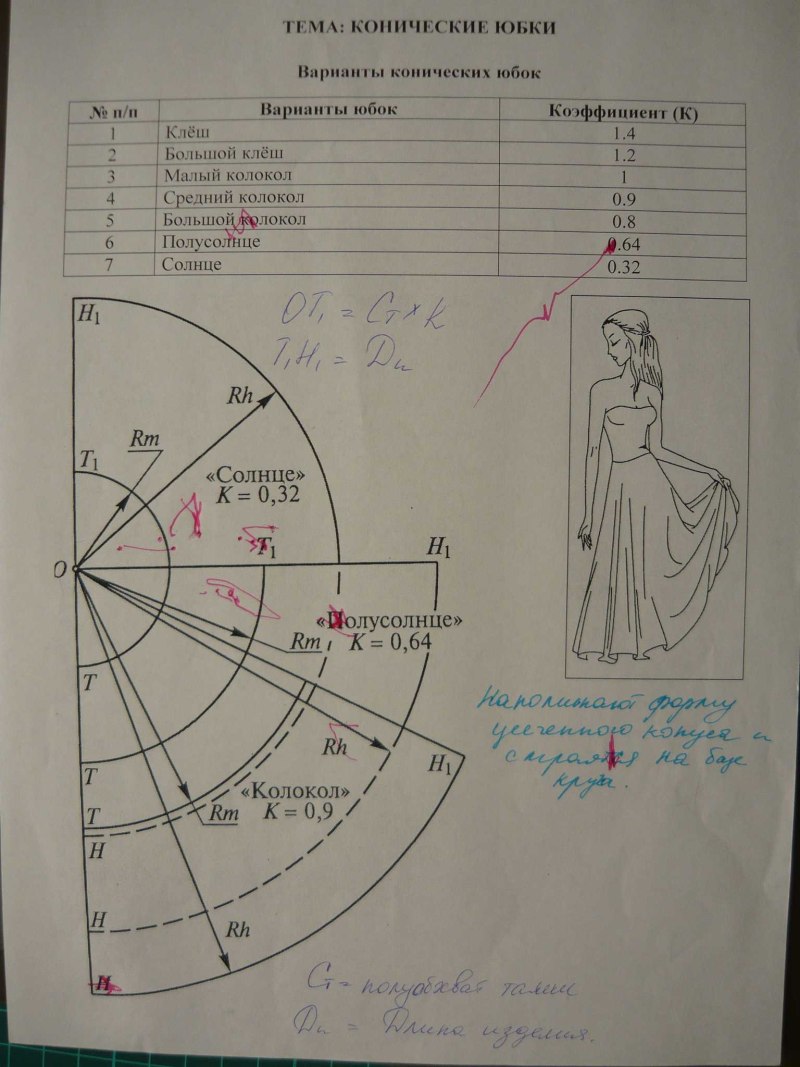 ТЕМА: КОНИЧЕСКИЕ ЮБКИ
Варианты конических юбок
№ п/п Варианты юбок Коэффициент (К)
1 Клёш 1.4
2 Большой клёш 1.2
3 Малый колокол 1
4 Средний колокол 0.9
5 Большой колокол 0.8
6 Полусолнце 0.64
7 Солнце 0.32
H₁
OT₁ = Ст × К
T₁H₁ = Ди
Rh
Rm
T₁
«Солнце»
K = 0,32
T₁
H₁
O
«Полусолнце»
Rm
K = 0,64
T
Напоминают форму
усеченного конуса и
строятся на базе
круга.
Rh
H₁
T
«Колокол»
Rm
K = 0,9
T
H
H
Rh
H
Ст = полуобхват талии
Ди = Длина изделия.